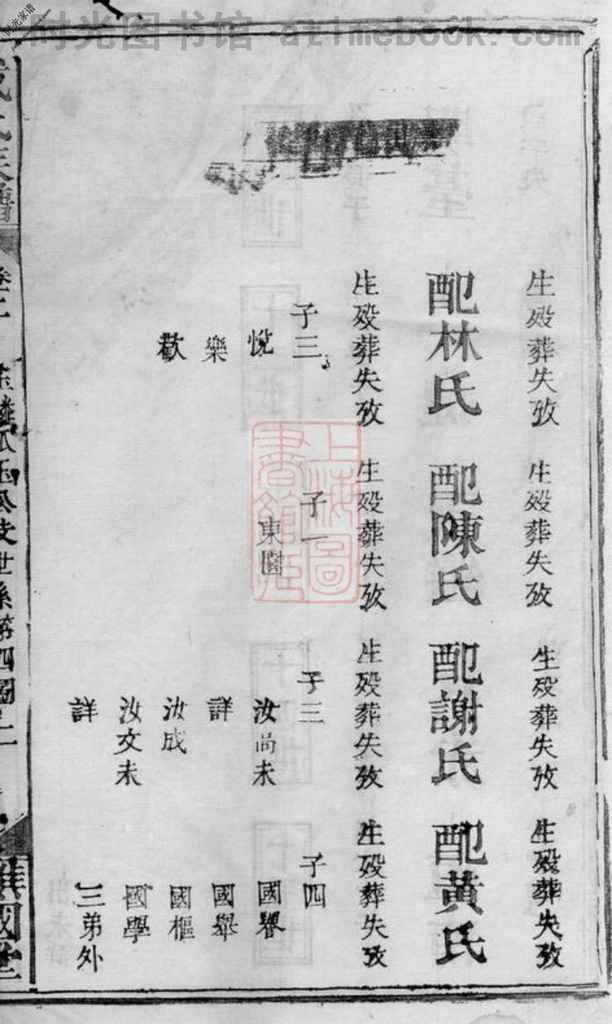 时光图书馆 - atimebook.com
生殁葬失攷
配林氏
生殁葬失攷
子三
悅
樂
歡
生殁葬失攷
配陳氏
生殁葬失攷
子一
東園
生殁葬失攷
配謝氏
生殁葬失攷
子三
汝尚未
詳
汝成
汝文未
詳
生殁葬失攷
配黃氏
生殁葬失攷
子四
國譽
國舉
國樞
國學
三弟外
上海圖
書館藏
氏族譜
卷二
世系第四圖
國堂